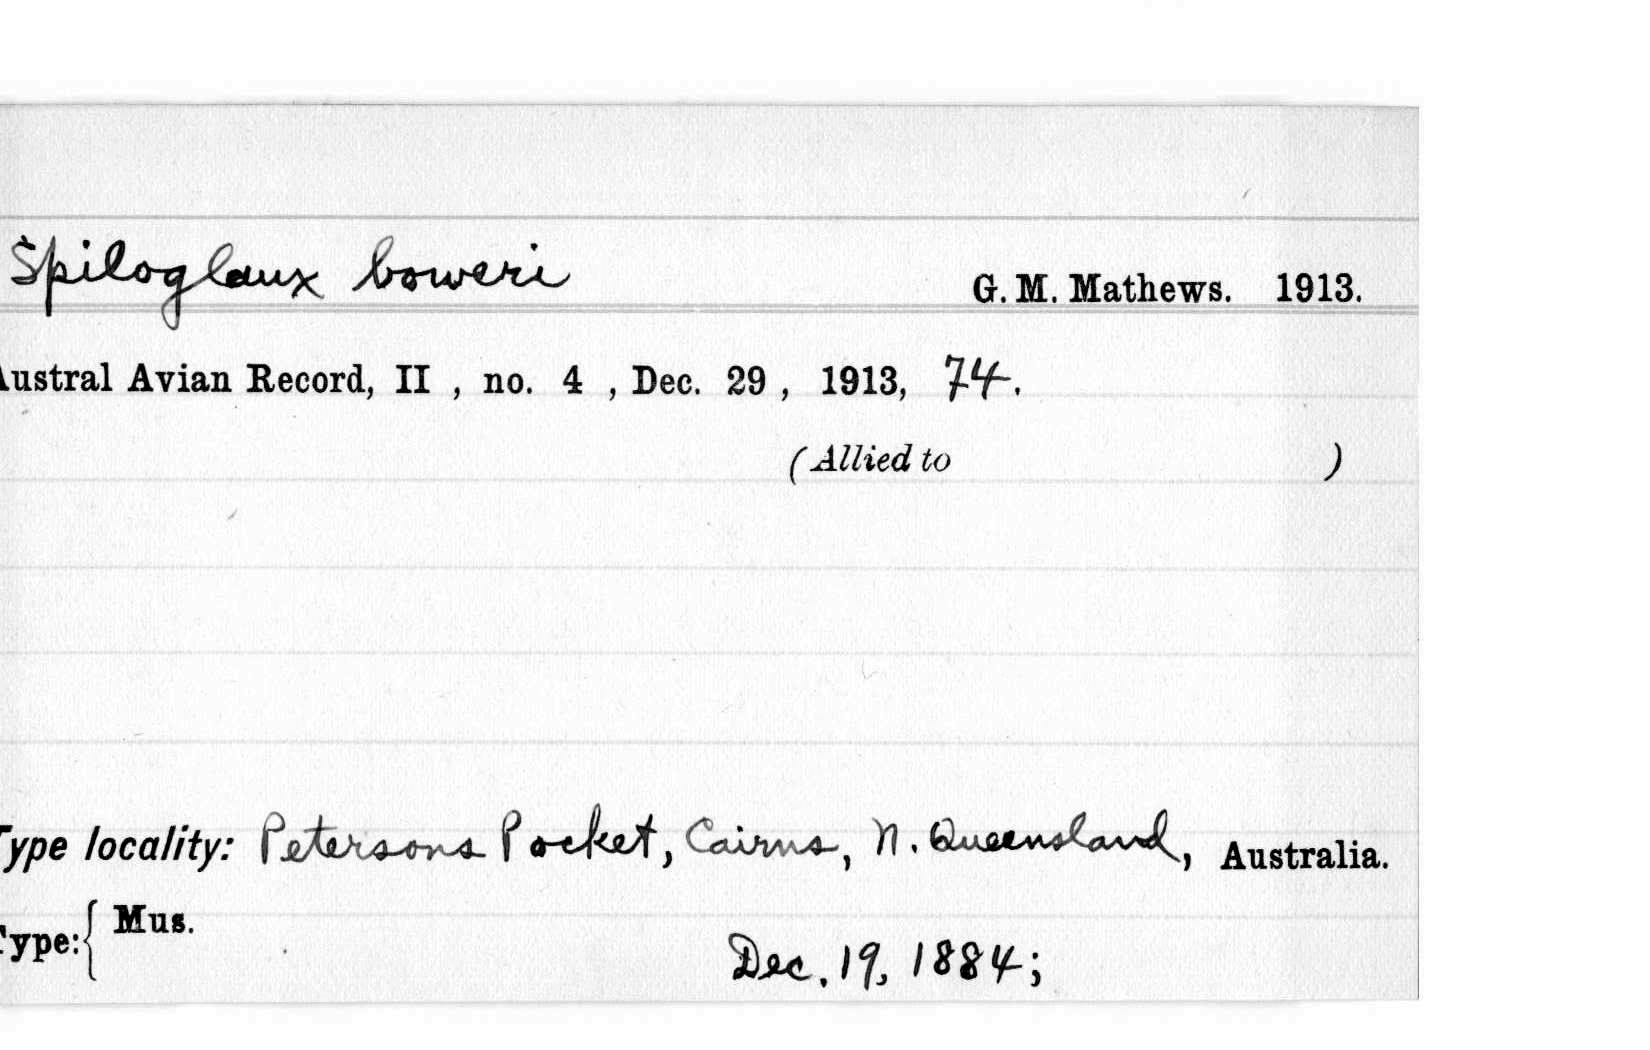 Spiloglaux boweri G. M. Mathews. 1913.
Austral Avian Record, II , no. 4 , Dec. 29 , 1913, 74.
(Allied to )
Type locality: Petersons Pocket, Cairns, N. Queensland, Australia.
Type: { Mus.
Dec. 19, 1884;